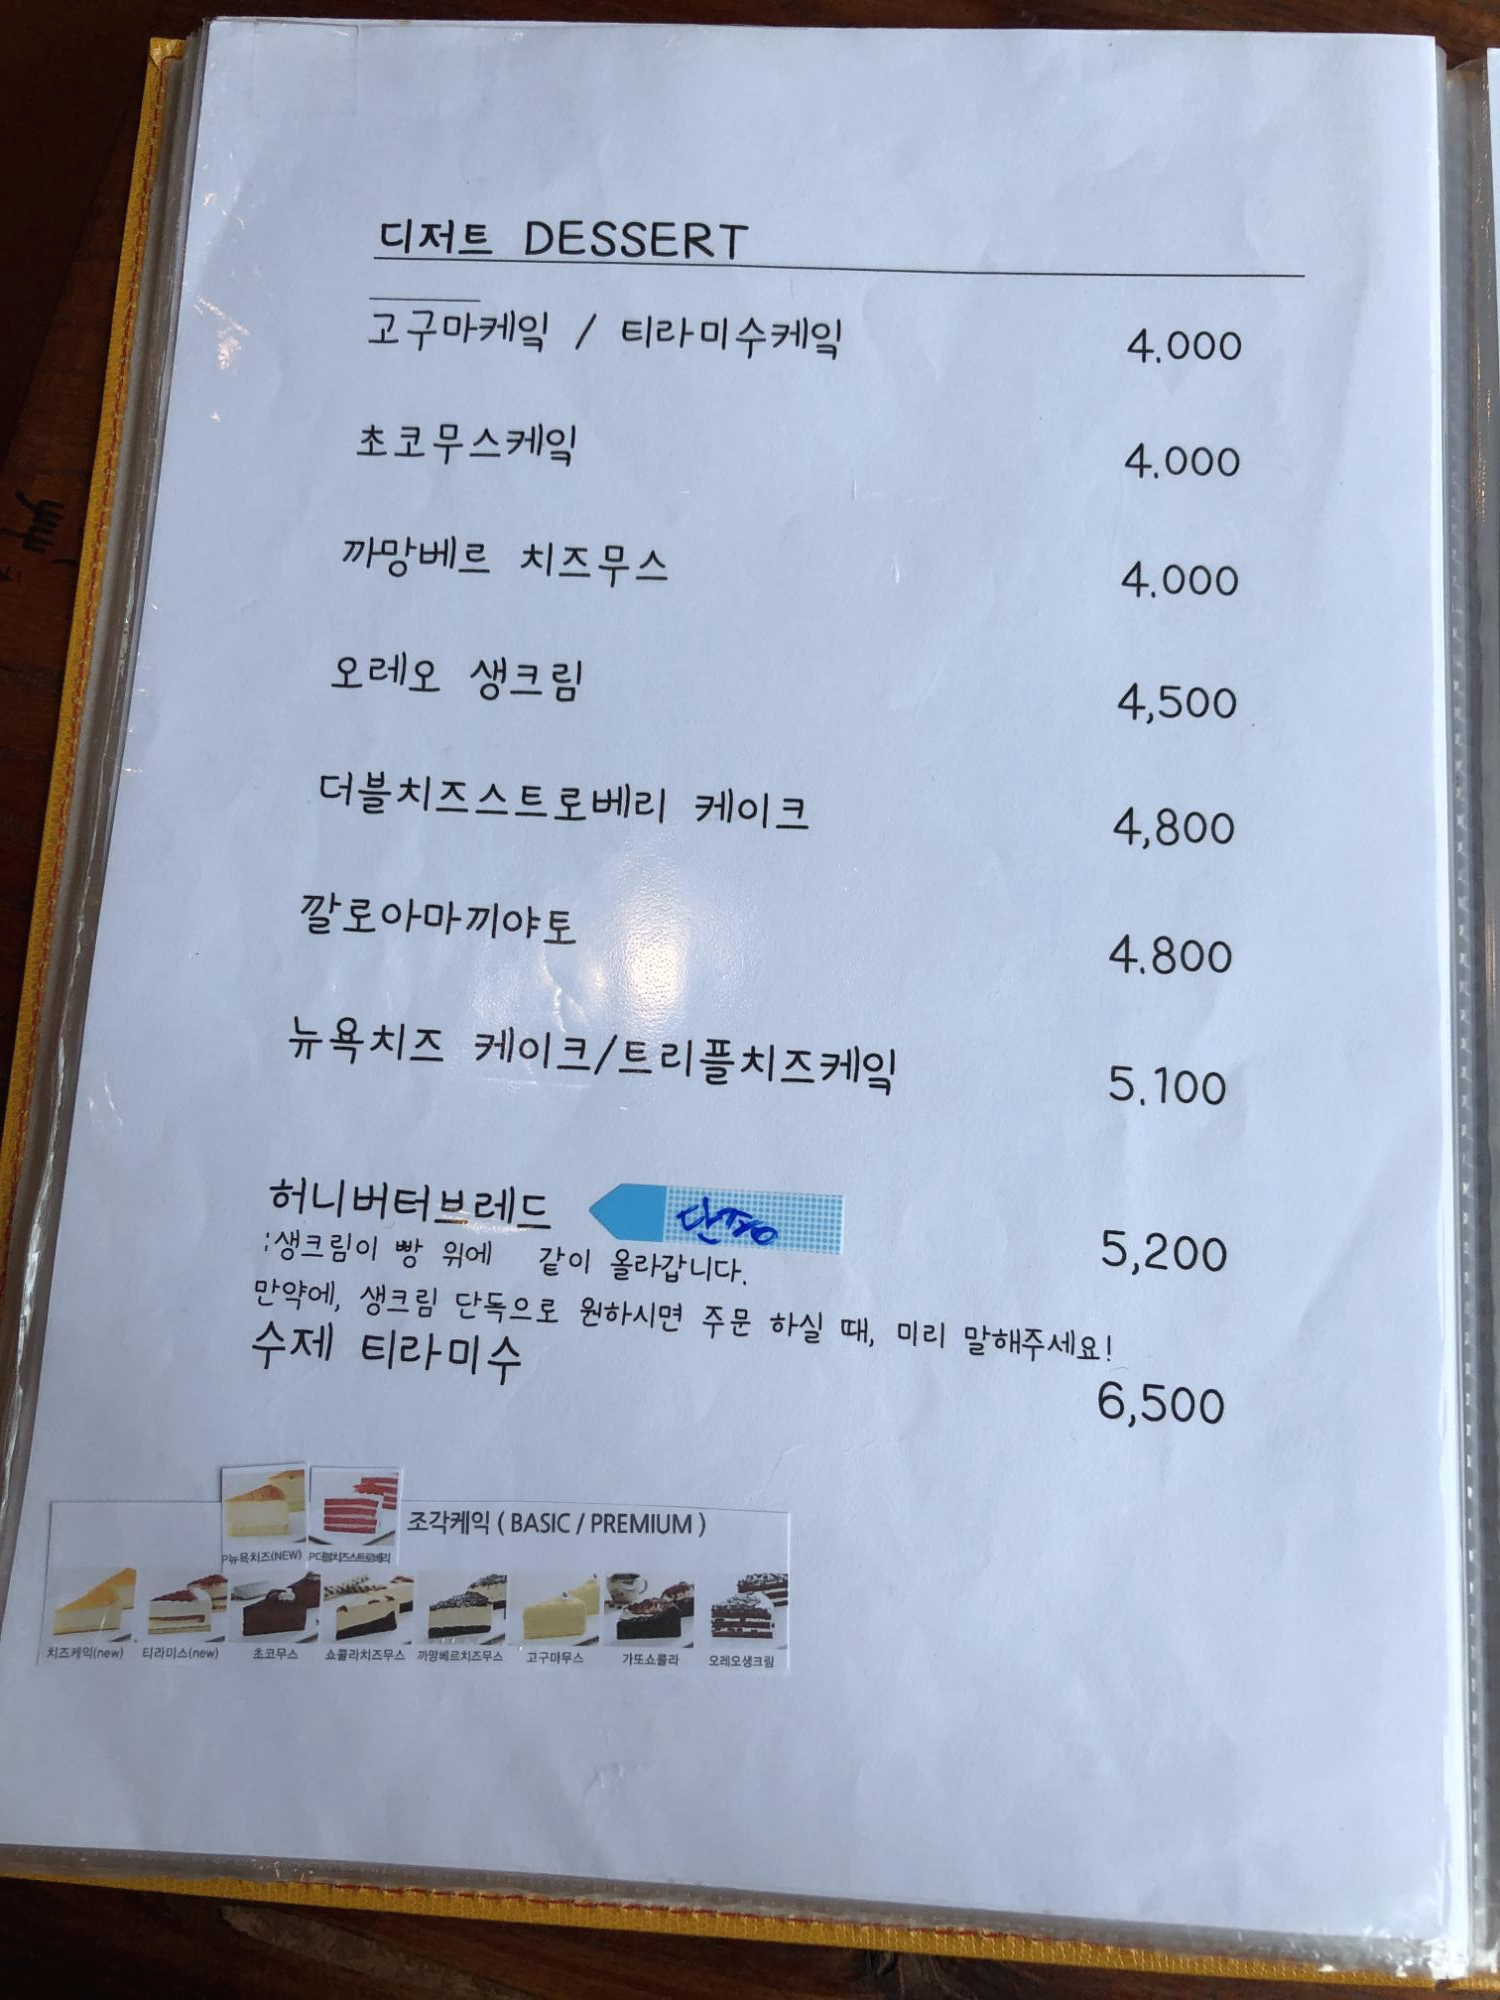 디저트 DESSERT
고구마케잌 / 티라미수케잌 4.000
초코무스케잌 4.000
까망베르 치즈무스 4.000
오레오 생크림 4,500
더블치즈스트로베리 케이크 4,800
깔로아마끼야토 4.800
뉴욕치즈 케이크/트리플치즈케잌 5.100
허니버터브레드 단종 5,200
:생크림이 빵 위에 같이 올라갑니다.
만약에, 생크림 단독으로 원하시면 주문 하실 때, 미리 말해주세요!
수제 티라미수 6,500
조각케익 ( BASIC / PREMIUM )
P뉴욕치즈(NEW) P더블치즈스트로베리
치즈케익(new) 티라미스(new) 초코무스 쇼콜라치즈무스 까망베르치즈무스 고구마무스 가또쇼콜라 오레오생크림